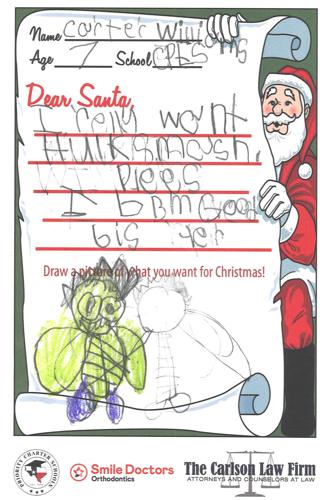 Name carter Williams
Age 7 School CPES
Dear Santa,
I relly wont
HULKSmash.
Plees
I bBM Good
bis Yer
Draw a picture of what you want for Christmas!
PRIORITY CHARTER SCHOOLS
Smile Doctors
Orthodontics
The Carlson Law Firm
ATTORNEYS AND COUNSELORS AT LAW